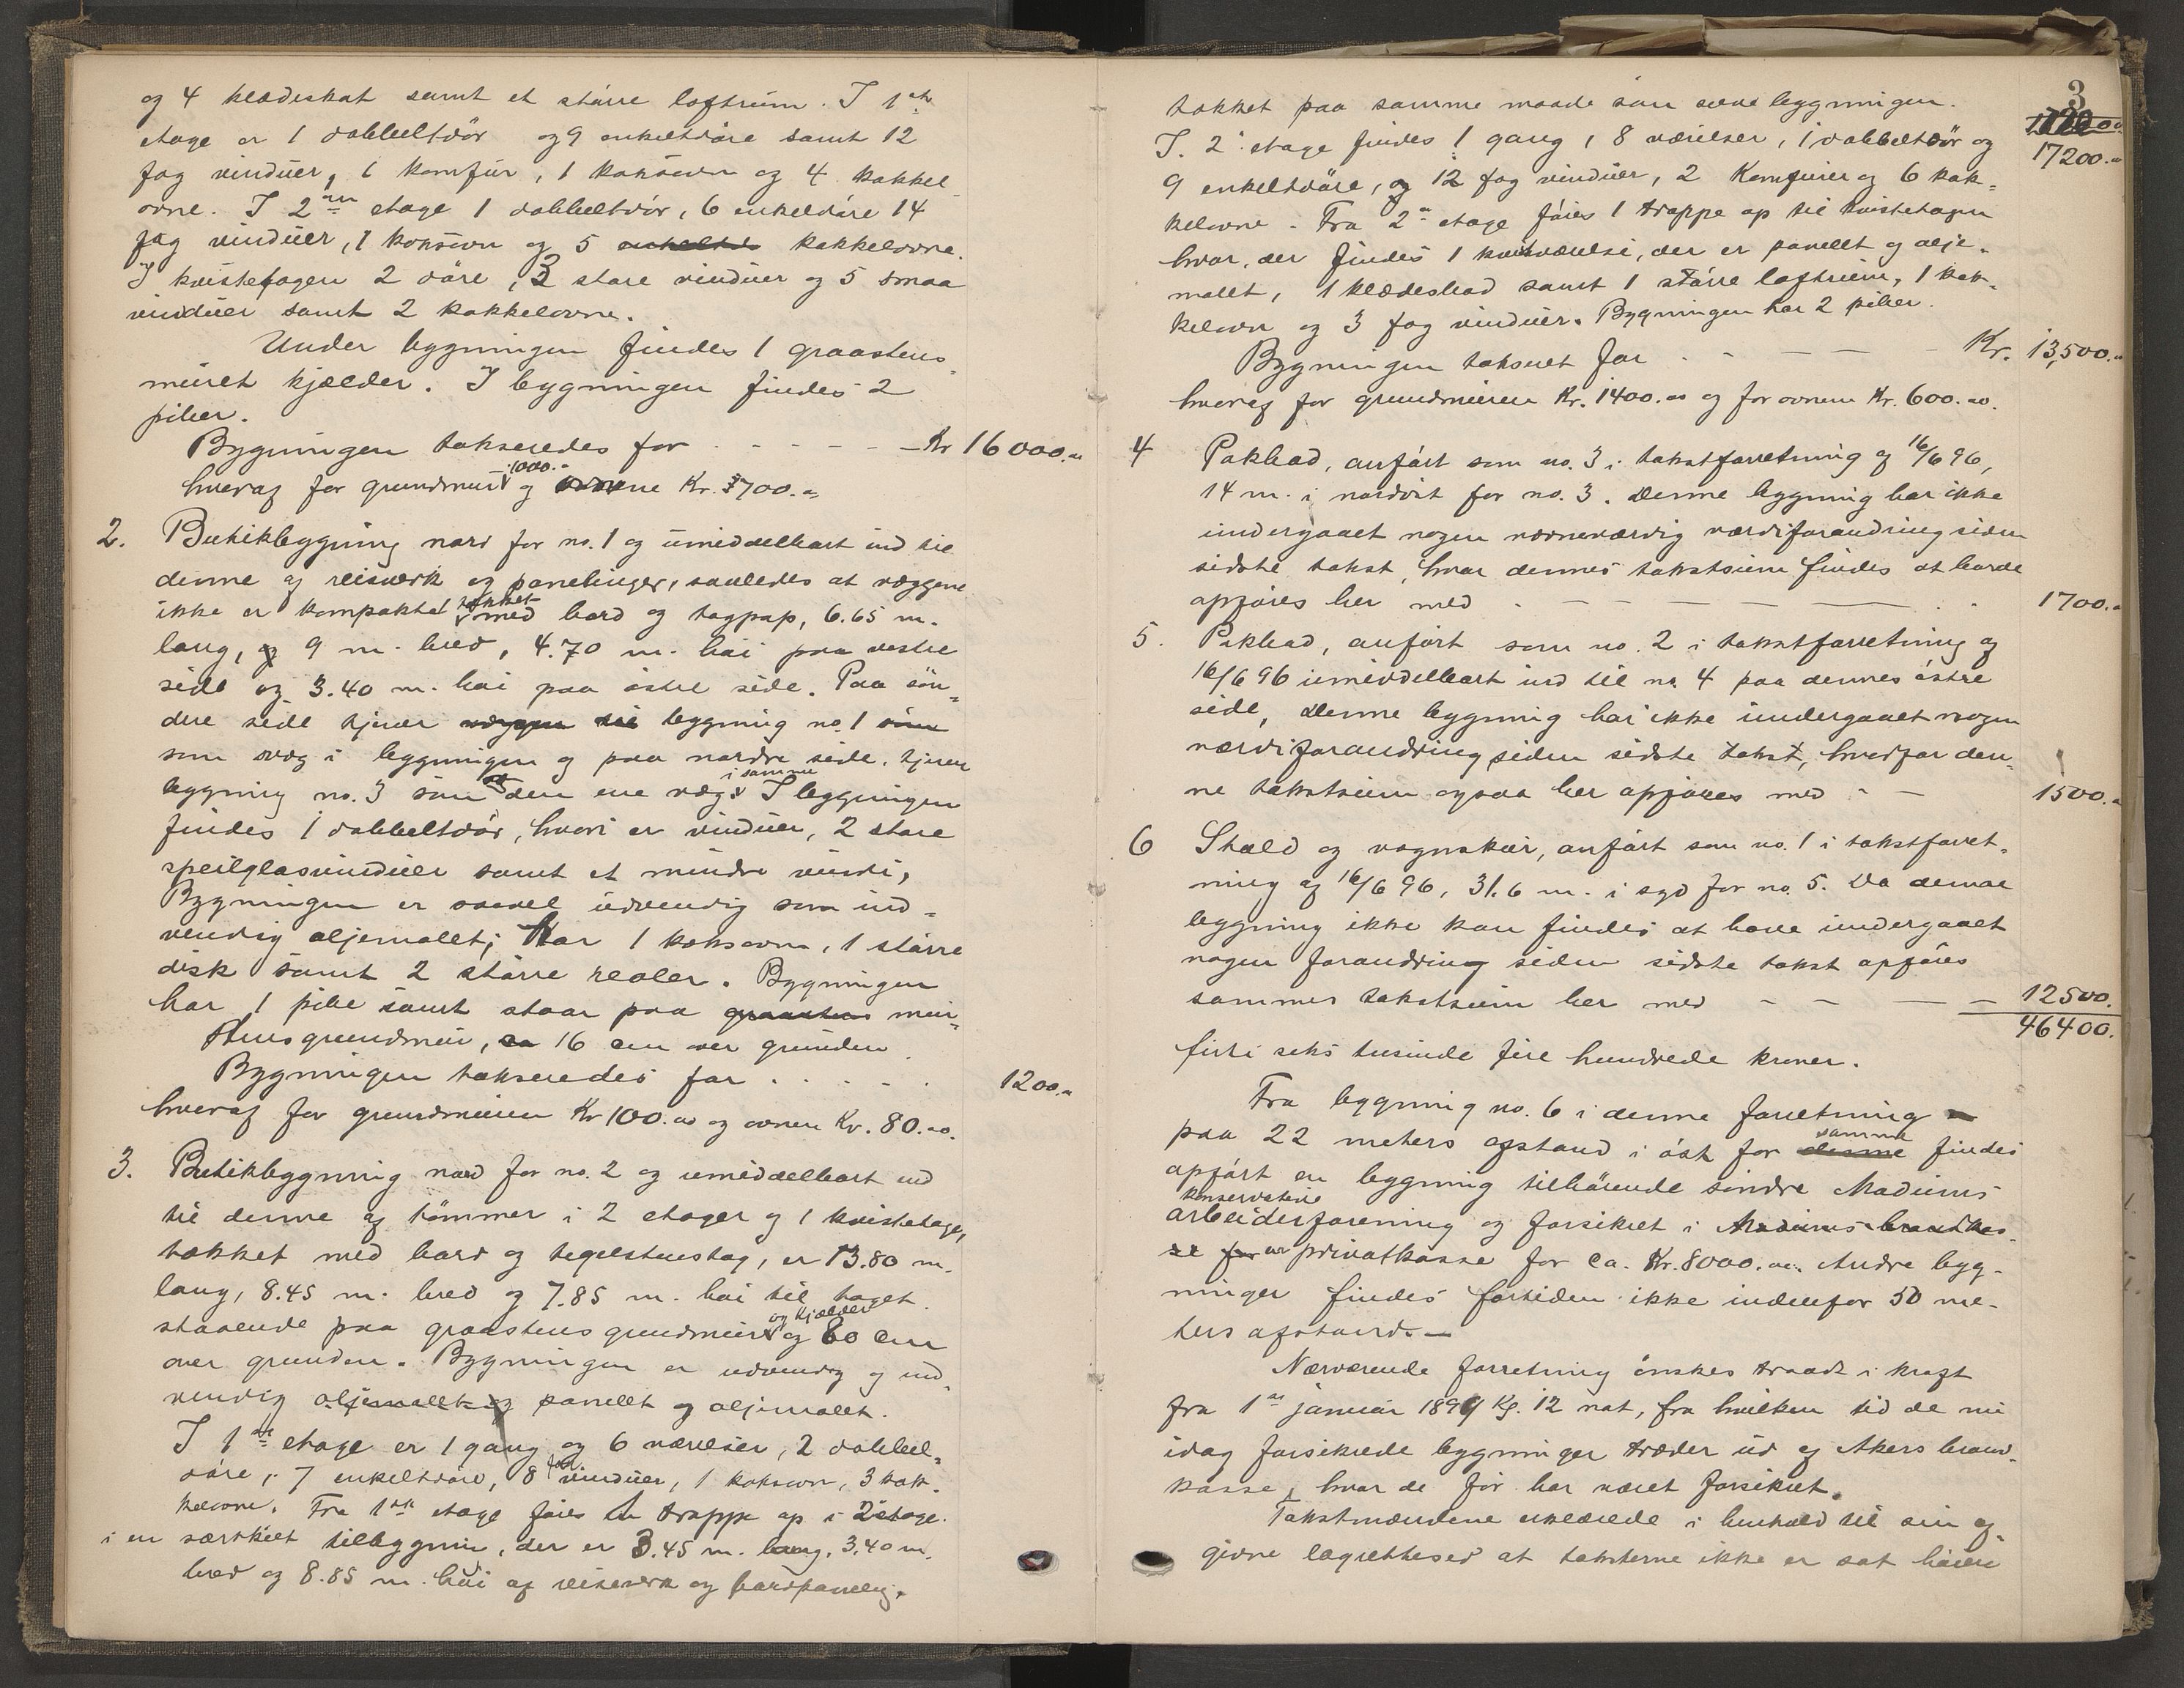 og 4 klædeskot samt et större loftrum. I 1ste
etage er 1 dobbeltdör og 9 enkeltdöre samt 12
fag vinduer, 1 komfur, 1 koksovn og 4 kakkel
ovne. I 2den etage 1 dobbeltdör, 6 enkeldöre 14
fag vinduer, 1 koksovn og 5 kakkelovne.
I kvistetagen 2 döre, 3 store vinduer og 5 smaa
vinduer samt 2 kakkelovne.
Under bygningen findes 1 graastens
muret kjælder. I bygningen findes 2
piber.
Bygningen takseredes for - - - - - Kr 16000.00
hveraf for grundmur 1000.- og ovnene Kr. 700.00
2. Butikbygning nord for no. 1 og umiddelbart ind til
denne af reisverk og panelinger, saaledes at væggene
ikke er kompakte tækket med bord og tagpap, 6.65 m.
lang, og 9 m. bred, 4.70 m. höi paa vestre
side og 3.40 m. höi paa östre side. Paa sön-
dre side tjener væggen til bygning no. 1 som
som væg i bygningen og paa nordre side tjener
bygning no. 3 som den ene væg i samme I bygningen
findes 1 dobbeltdör, hvori er vinduer, 2 store
speilglasvinduer samt et mindre vindu,
Bygningen er saavel udvendig som ind-
vendig oljemallet; har 1 koksovn, 1 större
disk samt 2 större reoler. Bygningen
har 1 pibe samt staar paa graastens mur-
stensgrundmur, ca 16 cm over grunden.
Bygningen takseredes for . . . . . 1200.00
hveraf for grundmuren Kr 100.00 og ovnen Kr. 80.00.
3. Butikbygning nord for no. 2 og umiddelbart ind
til denne af tömmer i 2 etager og 1 kvistetage,
tækket med bord og teglstenstag, er 13.80 m.
lang, 8.45 m. bred og 7.85 m. höi til taget.
staaende paa graastens grundmur og kjælder og 80 cm
over grunden. Bygningen er udvendig og ind-
vendig oljemallet og panellt og oljemallet.
I 1ste etage er 1 gang og 6 værelser, 2 dobbel-
döre, 7 enkeltdöre, 8 fag vinduer, 1 koksovn, 3 kak-
kelovne. Fra 1ste etage föres en trappe op i 2 etage.
i en særskilt tilbygnin, der er 3.45 m. lang, 3.40 m.
bred og 8.85 m. höi af reisverk og bordpaneling.
3
tækket paa samme maade som selve bygningen. 17200
I. 2. etage findes 1 gang, 8 værelser, 1 dobbeltdör og 17200.00
9 enkeltdöre, og 12 fag vinduer, 2 Komfurer og 6 kak-
kelovne. Fra 2n etage föres 1 trappe op til kvistetagen
hvor, der findes 1 kvistværelse, der er panellt og olje-
mallt, 1 klædeskod samt 1 större loftrum, 1 kak-
kelovn og 3 fag vinduer. Bygningen har 2 piber.
Bygningen takseret for - - - Kr. 13,500.00
hveraf for grundmuren Kr. 1400.00 og for ovnene Kr. 600.00.
4 Pakbod, anfört som no. 3 i takstforretning af 16/6 96,
14 m. i nordöst for no. 3. Denne bygning har ikke
undergaaet nogen nævneværdig værdiforandring siden
sidste takst, hvor dennes takstsum findes at burde
opföres her med - - - - - 1700.00
5. Pakbod, anfört som no. 2 i takstforretning af
16/6 96 umiddelbart ind til no. 4 paa dennes östre
side, Denne bygning har ikke undergaaet nogen
værdiforandring siden sidste takst, hvorfor den-
ne takstsum ogsaa her opföres med - - 1500.00
6 Stald og vognskur, anfört som no. 1 i takstforret-
ning af 16/6 96, 31.6 m. i syd for no. 5. Da denne
bygning ikke kan findes at have undergaaet
nogen forandring siden sidste takst opföres
sammes takstsum her med - - - - 12500.
46400.
firti seks tusinde fire hundrede kroner.
Fra bygning no. 6 i denne forretning
paa 22 meters afstand i öst for denne samme findes
opfört en bygning tilhörende söndre Madums
konservative
arbeiderforening og forsikret i Madums brandkas-
se for en privatkasse for ca. Kr. 8000.00. Andre byg-
ninger findes fortiden ikke indenfor 50 me-
ters afstand. —
Nærværende forretning önskes traadt i kraft
fra 1ste januar 1899 Kl. 12 nat, fra hvilken tid de nu
idag forsikrede bygninger træder ud af Akers brand-
kasse, hvor de för har været forsikret.
Takstmændene erklærede i henhold til sin af-
givne lagrettesed at taksterne ikke er sat höiere